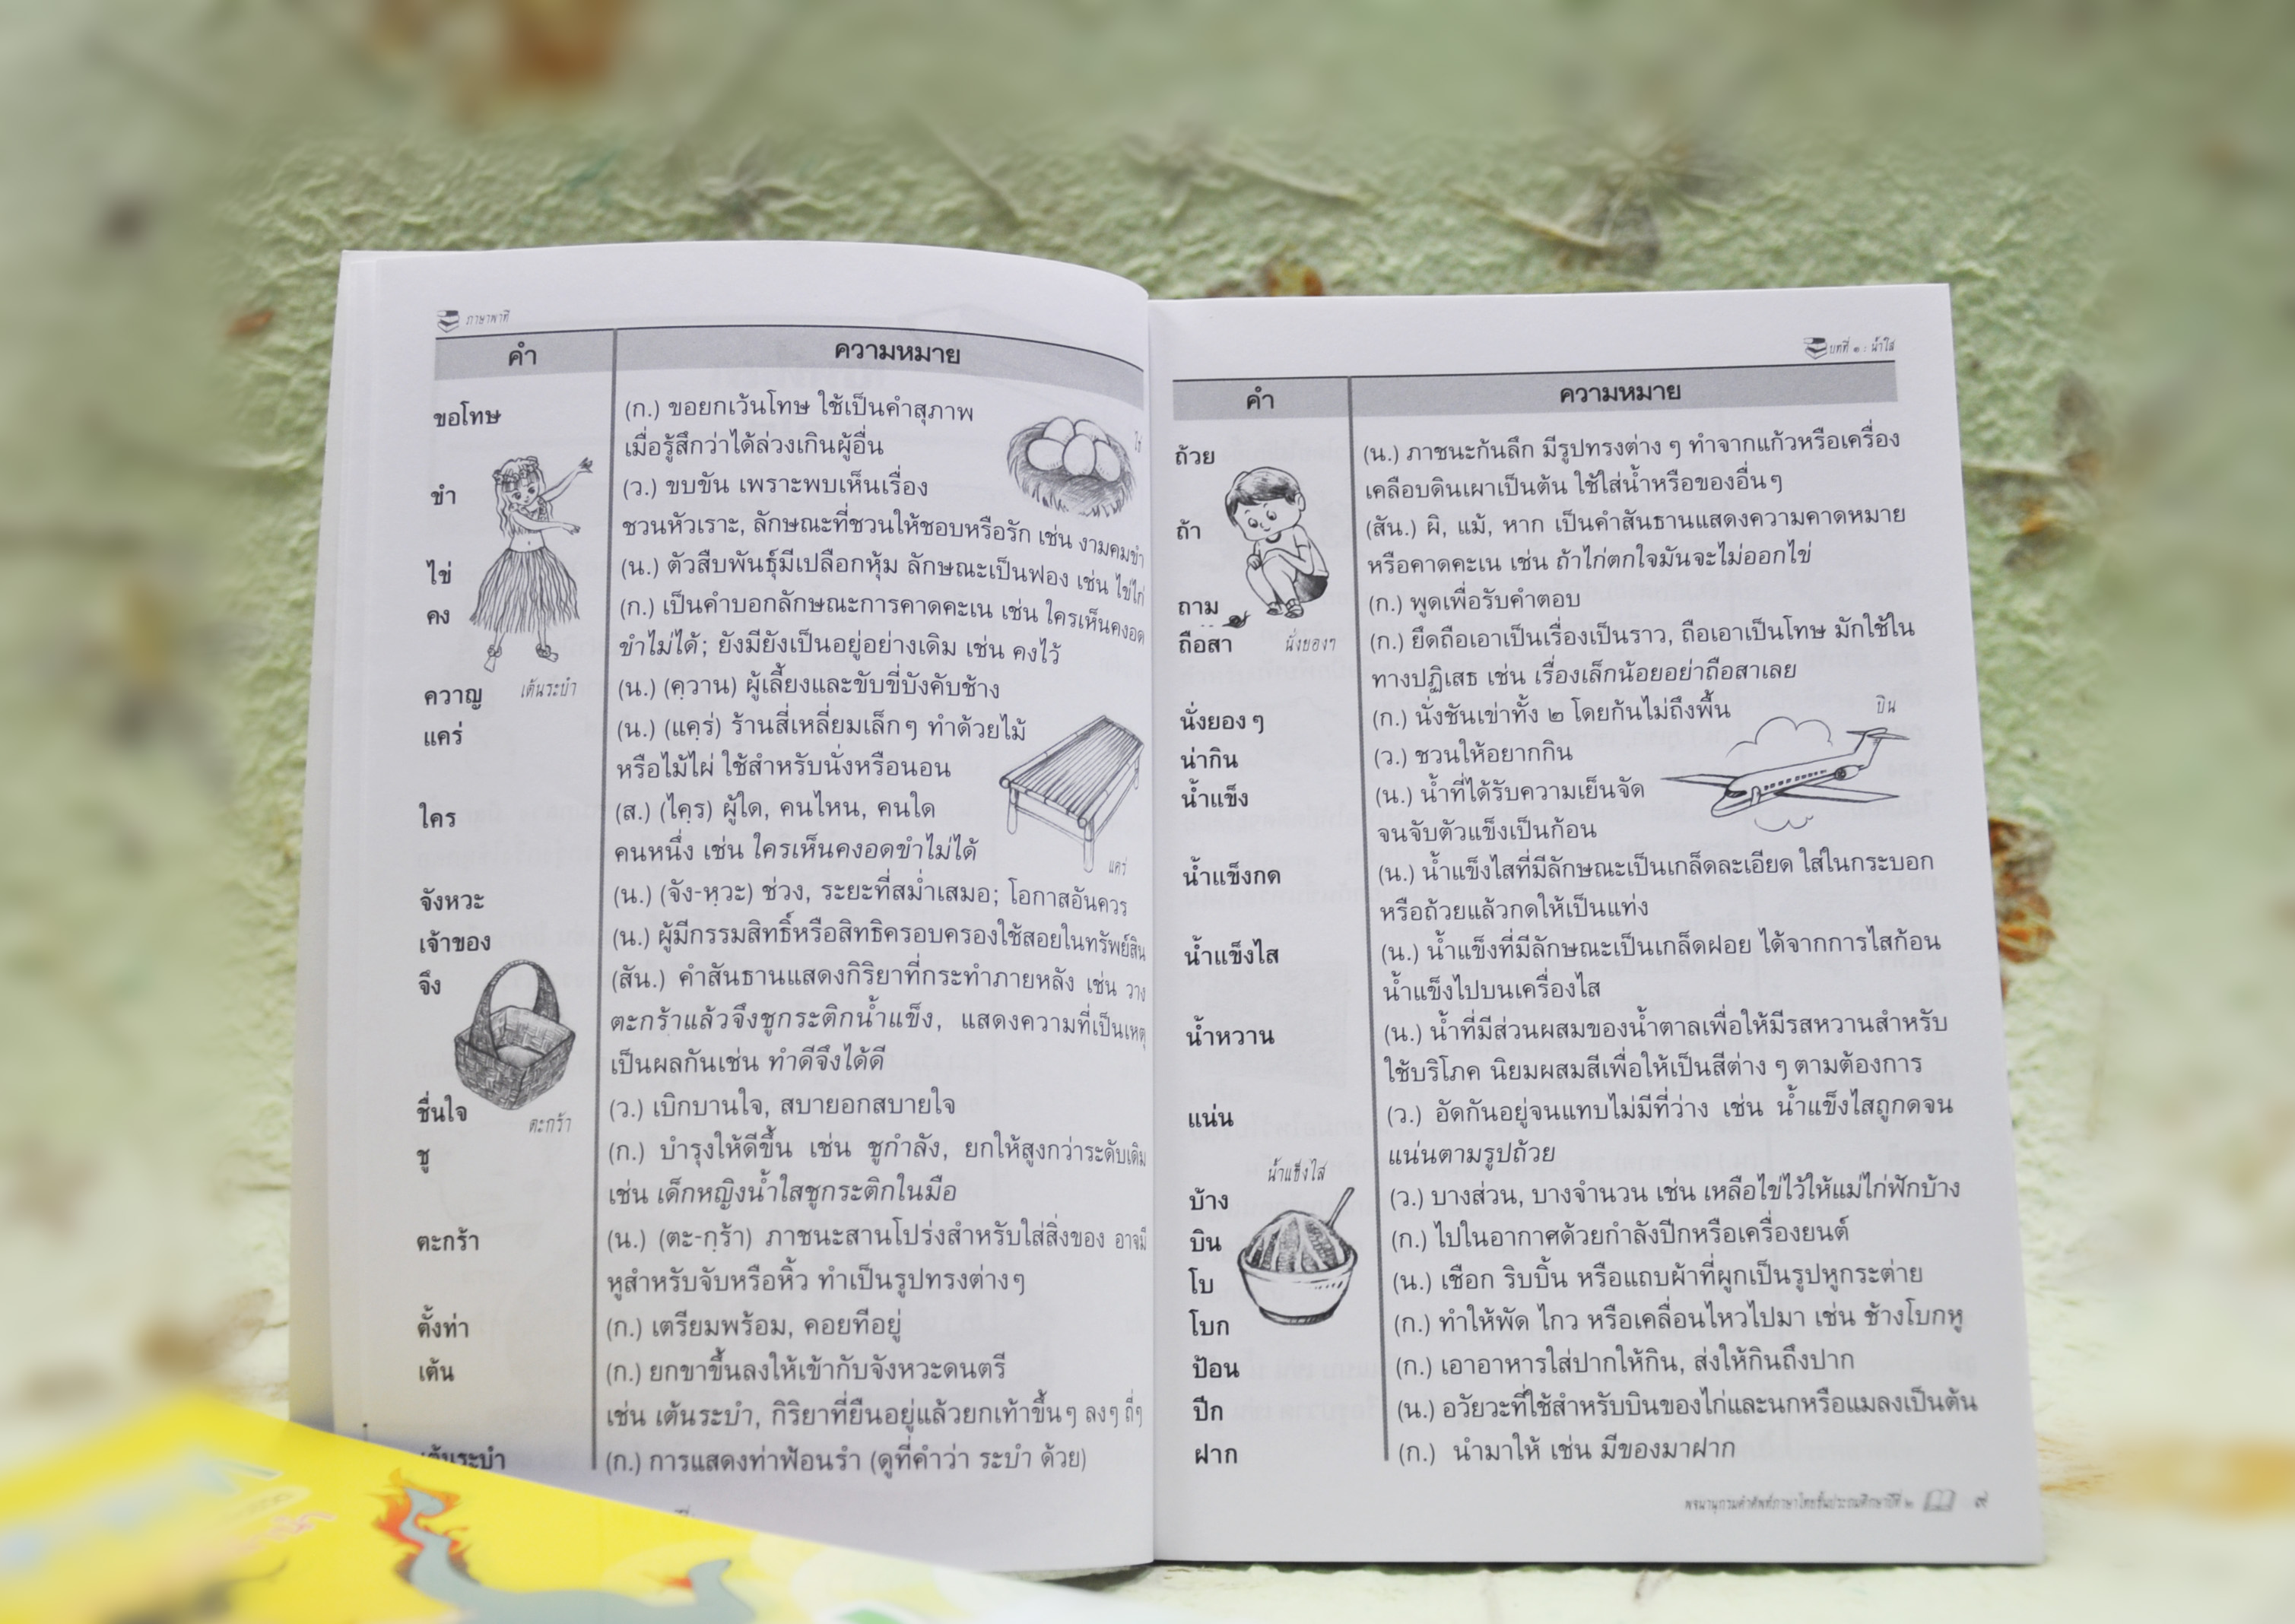 ภาษาพาที
คำ ความหมาย
ขอโทษ (ก.) ขอยกเว้นโทษ ใช้เป็นคำสุภาพ
เมื่อรู้สึกว่าได้ล่วงเกินผู้อื่น
ไข่
ขำ (ว.) ขบขัน เพราะพบเห็นเรื่อง
ชวนหัวเราะ, ลักษณะที่ชวนให้ชอบหรือรัก เช่น งามคมขำ
ไข่ (น.) ตัวสืบพันธุ์มีเปลือกหุ้ม ลักษณะเป็นฟอง เช่น ไข่ไก่
คง (ก.) เป็นคำบอกลักษณะการคาดคะเน เช่น ใครเห็นคงอด
ขำไม่ได้; ยังมียังเป็นอยู่อย่างเดิม เช่น คงไว้
เต้นระบำ
ควาญ (น.) (คฺวาน) ผู้เลี้ยงและขับขี่บังคับช้าง
แคร่ (น.) (แคฺร่) ร้านสี่เหลี่ยมเล็กๆ ทำด้วยไม้
หรือไม้ไผ่ ใช้สำหรับนั่งหรือนอน
ใคร (ส.) (ไคฺร) ผู้ใด, คนไหน, คนใด
คนหนึ่ง เช่น ใครเห็นคงอดขำไม่ได้
แคร่
จังหวะ (น.) (จัง-หฺวะ) ช่วง, ระยะที่สม่ำเสมอ; โอกาสอันควร
เจ้าของ (น.) ผู้มีกรรมสิทธิ์หรือสิทธิครอบครองใช้สอยในทรัพย์สิน
จึง (สัน.) คำสันธานแสดงกิริยาที่กระทำภายหลัง เช่น วาง
ตะกร้าแล้วจึงชูกระติกน้ำแข็ง, แสดงความที่เป็นเหตุ
เป็นผลกันเช่น ทำดีจึงได้ดี
ชื่นใจ (ว.) เบิกบานใจ, สบายอกสบายใจ
ตะกร้า
ชู (ก.) บำรุงให้ดีขึ้น เช่น ชูกำลัง, ยกให้สูงกว่าระดับเดิม
เช่น เด็กหญิงน้ำใสชูกระติกในมือ
ตะกร้า (น.) (ตะ-กฺร้า) ภาชนะสานโปร่งสำหรับใส่สิ่งของ อาจมี
หูสำหรับจับหรือหิ้ว ทำเป็นรูปทรงต่างๆ
ตั้งท่า (ก.) เตรียมพร้อม, คอยทีอยู่
เต้น (ก.) ยกขาขึ้นลงให้เข้ากับจังหวะดนตรี
เช่น เต้นระบำ, กิริยาที่ยืนอยู่แล้วยกเท้าขึ้นๆ ลงๆ ถี่ๆ
เต้นระบำ (ก.) การแสดงท่าฟ้อนรำ (ดูที่คำว่า ระบำ ด้วย)
บทที่ ๑ : น้ำใส
คำ ความหมาย
ถ้วย (น.) ภาชนะก้นลึก มีรูปทรงต่าง ๆ ทำจากแก้วหรือเครื่อง
เคลือบดินเผาเป็นต้น ใช้ใส่น้ำหรือของอื่นๆ
ถ้า (สัน.) ผิ, แม้, หาก เป็นคำสันธานแสดงความคาดหมาย
หรือคาดคะเน เช่น ถ้าไก่ตกใจมันจะไม่ออกไข่
ถาม (ก.) พูดเพื่อรับคำตอบ
ถือสา (ก.) ยึดถือเอาเป็นเรื่องเป็นราว, ถือเอาเป็นโทษ มักใช้ใน
ทางปฏิเสธ เช่น เรื่องเล็กน้อยอย่าถือสาเลย
นั่งยองๆ
นั่งยอง ๆ (ก.) นั่งชันเข่าทั้ง ๒ โดยก้นไม่ถึงพื้น
บิน
น่ากิน (ว.) ชวนให้อยากกิน
น้ำแข็ง (น.) น้ำที่ได้รับความเย็นจัด
จนจับตัวแข็งเป็นก้อน
น้ำแข็งกด (น.) น้ำแข็งไสที่มีลักษณะเป็นเกล็ดละเอียด ใส่ในกระบอก
หรือถ้วยแล้วกดให้เป็นแท่ง
น้ำแข็งไส (น.) น้ำแข็งที่มีลักษณะเป็นเกล็ดฝอย ได้จากการไสก้อน
น้ำแข็งไปบนเครื่องไส
น้ำหวาน (น.) น้ำที่มีส่วนผสมของน้ำตาลเพื่อให้มีรสหวานสำหรับ
ใช้บริโภค นิยมผสมสีเพื่อให้เป็นสีต่าง ๆ ตามต้องการ
แน่น (ว.) อัดกันอยู่จนแทบไม่มีที่ว่าง เช่น น้ำแข็งไสถูกดจน
แน่นตามรูปถ้วย
น้ำแข็งใส่
บ้าง (ว.) บางส่วน, บางจำนวน เช่น เหลือไข่ไว้ให้แม่ไก่ฟักบ้าง
บิน (ก.) ไปในอากาศด้วยกำลังปีกหรือเครื่องยนต์
โบ (น.) เชือก ริบบิ้น หรือแถบผ้าที่ผูกเป็นรูปหูกระต่าย
โบก (ก.) ทำให้พัด ไกว หรือเคลื่อนไหวไปมา เช่น ช้างโบกหู
ป้อน (ก.) เอาอาหารใส่ปากให้กิน, ส่งให้กินถึงปาก
ปีก (น.) อวัยวะที่ใช้สำหรับบินของไก่และนกหรือแมลงเป็นต้น
ฝาก (ก.) นำมาให้ เช่น มีของมาฝาก
พจนานุกรมคำศัพท์ภาษาไทยชั้นประถมศึกษาปีที่ ๒ ๙